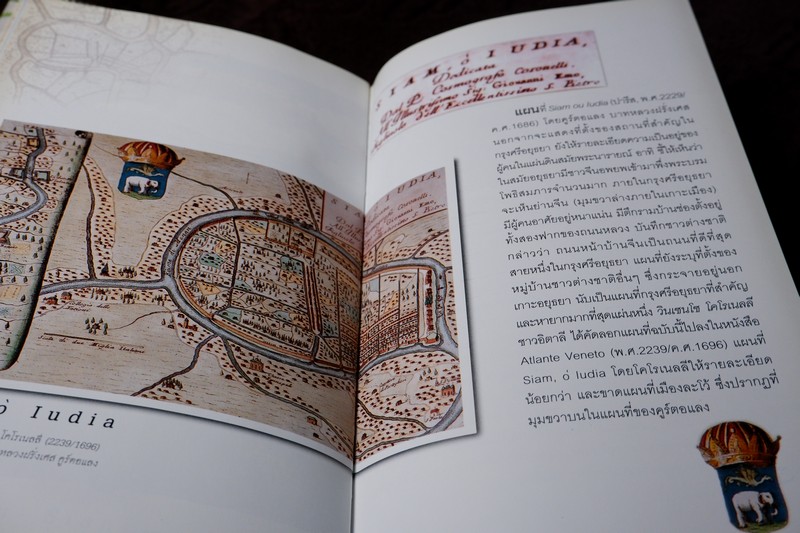 ò Iudia
โคโรเนลลี (2239/1696)
หลวงฝรั่งเศส คูร์ตอแลง
SIAM, ò IUDIA,
Dedicata
Dal P. Cosmografo Coronelli,
All' Illustrissimo Sig. Giovanni Emo,
S. Pietro
IUDIA,
Coronelli,
Giovanni Emo,
แผนที่ Siam ou Iudia (ปารีส, พ.ศ.2229/
ค.ศ.1686) โดยคูร์ตอแลง บาทหลวงฝรั่งเศส
นอกจากจะแสดงที่ตั้งของสถานที่สำคัญใน
กรุงศรีอยุธยา ยังให้รายละเอียดความเป็นอยู่ของ
ผู้คนในแผ่นดินสมัยพระนารายณ์ อาทิ ชี้ให้เห็นว่า
ในสมัยอยุธยามีชาวจีนอพยพเข้ามาพึ่งพระบรม
โพธิสมภารจำนวนมาก ภายในกรุงศรีอยุธยา
จะเห็นย่านจีน (มุมขวาล่างภายในเกาะเมือง)
มีผู้คนอาศัยอยู่หนาแน่น มีตึกรามบ้านช่องตั้งอยู่
ทั้งสองฟากของถนนหลวง บันทึกชาวต่างชาติ
กล่าวว่า ถนนหน้าบ้านจีนเป็นถนนที่ดีที่สุด
สายหนึ่งในกรุงศรีอยุธยา แผนที่ยังระบุที่ตั้งของ
หมู่บ้านชาวต่างชาติอื่นๆ ซึ่งกระจายอยู่นอก
เกาะอยุธยา นับเป็นแผนที่กรุงศรีอยุธยาที่สำคัญ
และหายากมากที่สุดแผ่นหนึ่ง วินเซนโซ โคโรเนลลี
ชาวอิตาลี ได้คัดลอกแผนที่ฉบับนี้ไปลงในหนังสือ
Atlante Veneto (พ.ศ.2239/ค.ศ.1696) แผนที่
Siam, ó Iudia โดยโคโรเนลลีให้รายละเอียด
น้อยกว่า และขาดแผนที่เมืองละโว้ ซึ่งปรากฏที่
มุมขวาบนในแผนที่ของคูร์ตอแลง